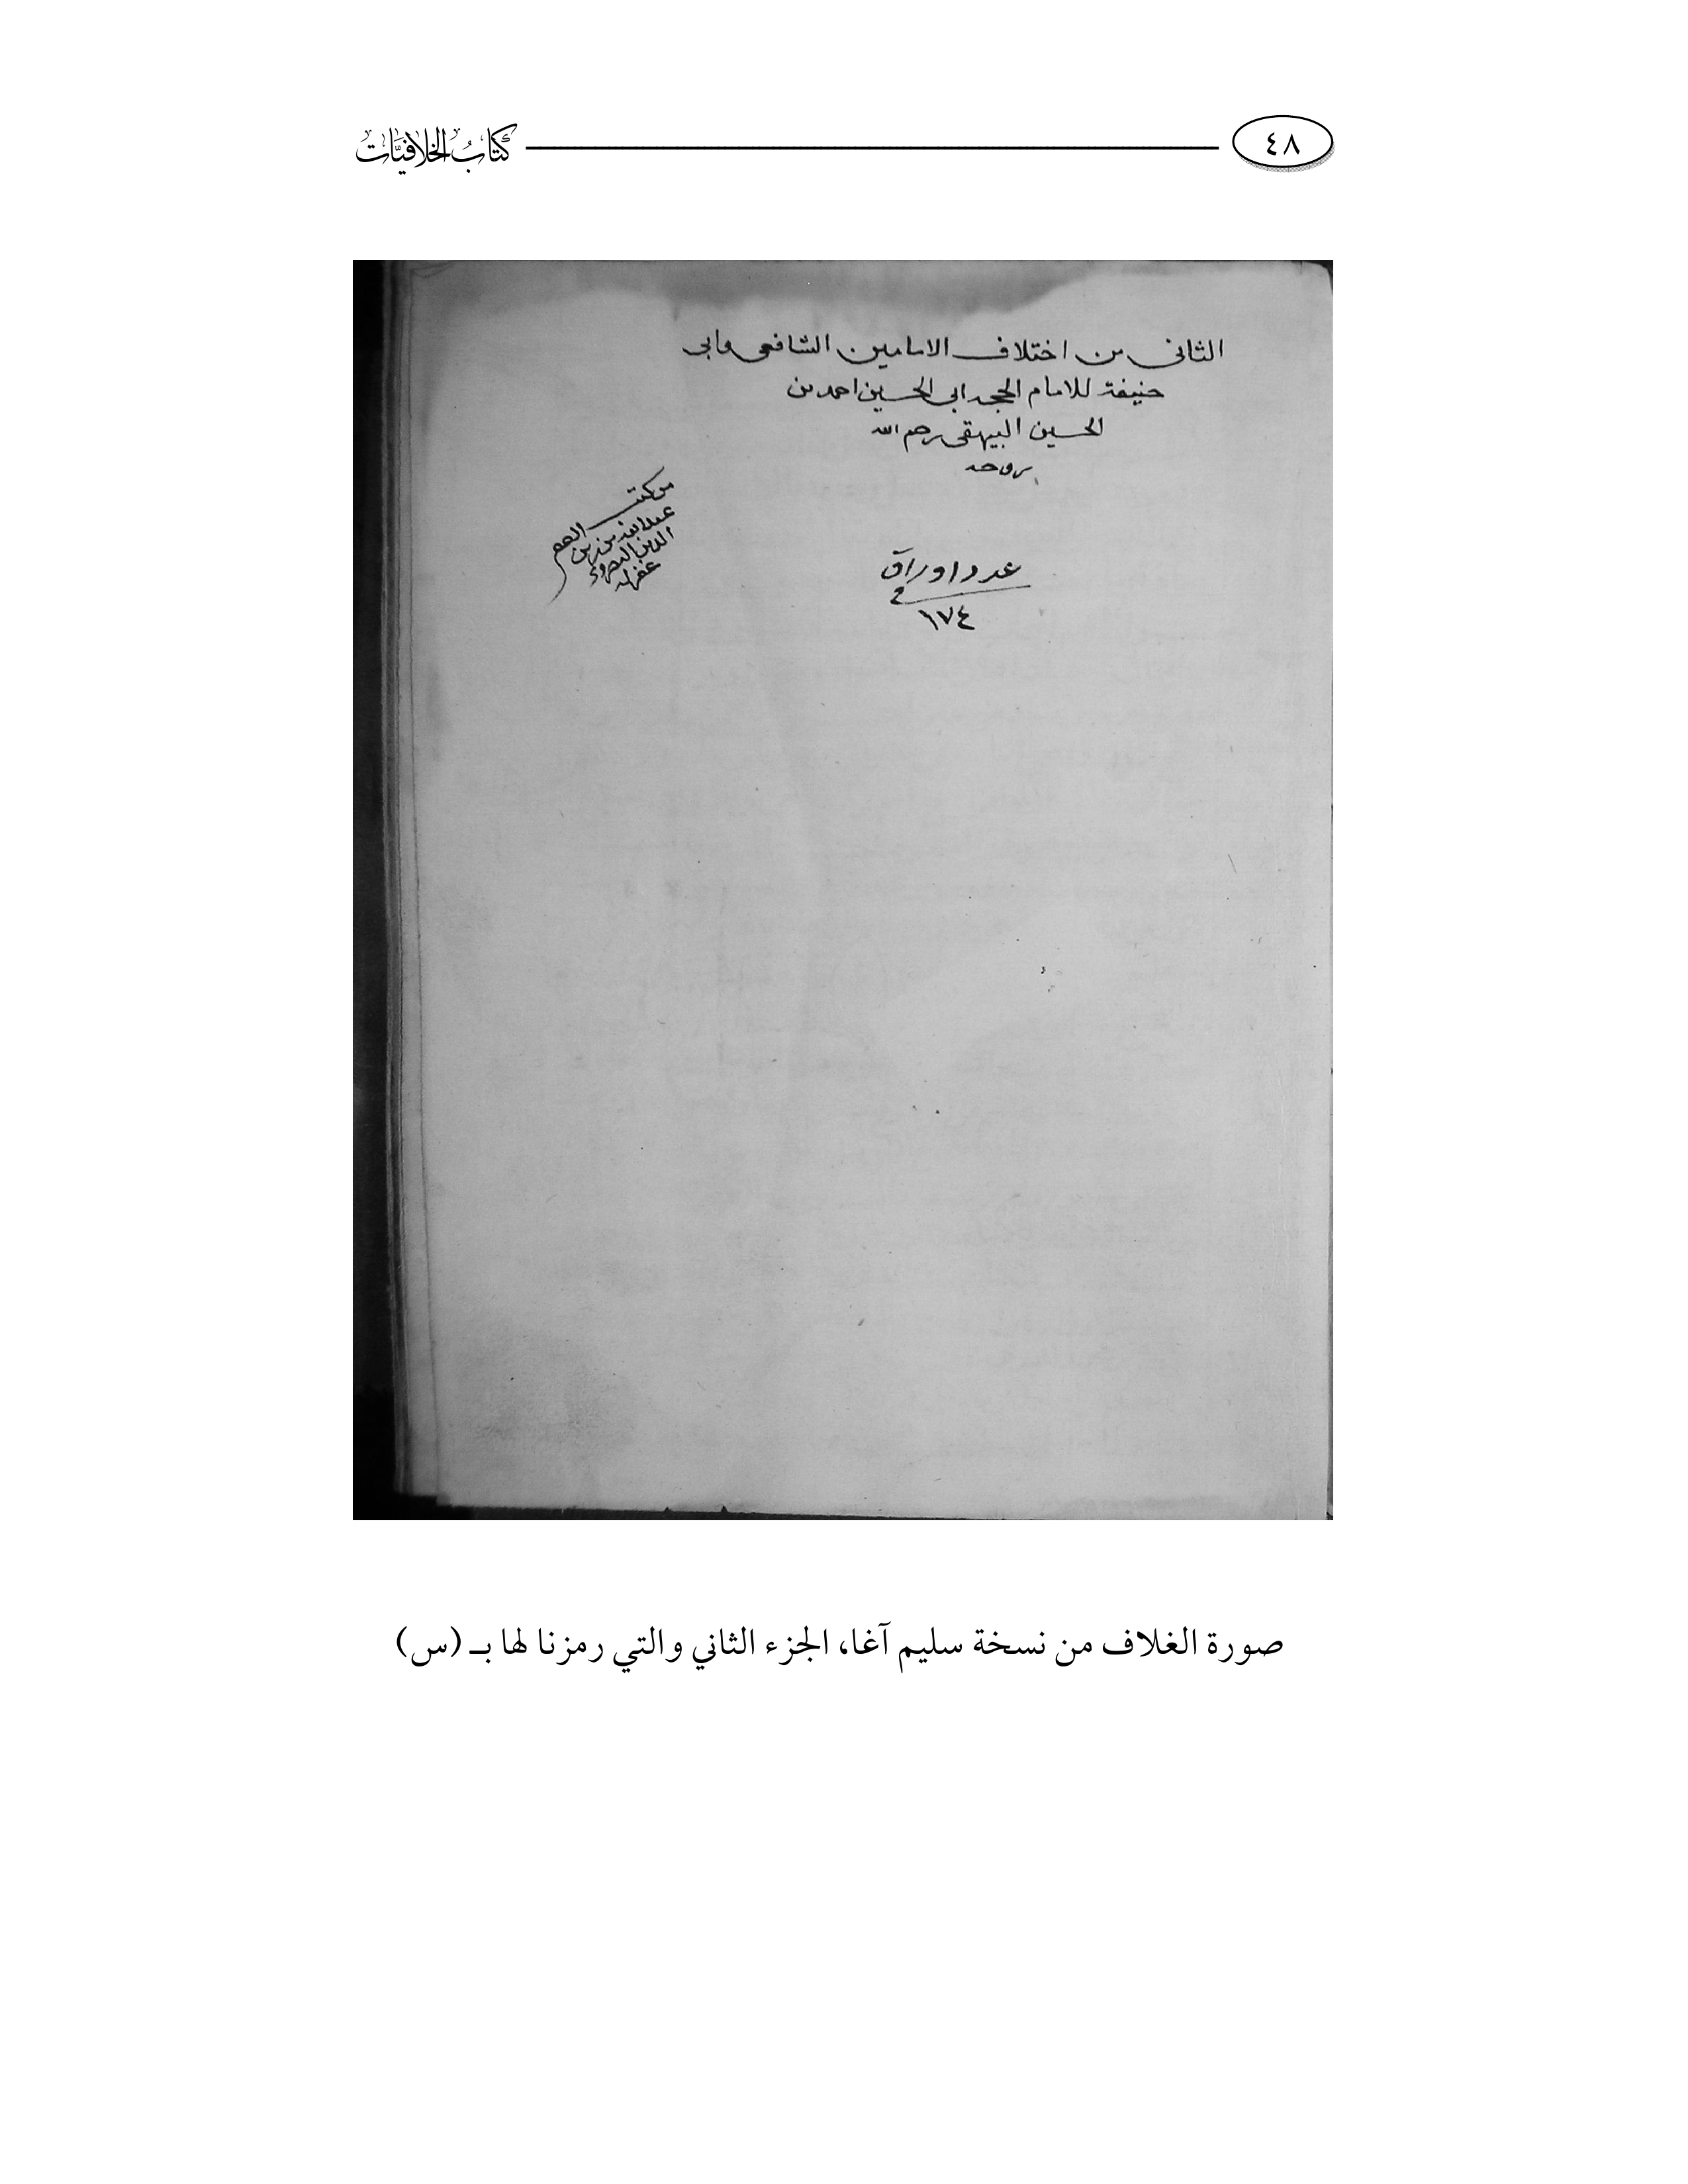 ٤٨
كتاب الخلافيات
الثانى من اختلاف الامامين الشافعى وابى
حنيفة للامام الحجه ابى الحسين احمد بن
الحسين البيهقى رحم الله
روحه
من كتب
عدد اوراق
١٧٤
صورة الغلاف من نسخة سليم آغا، الجزء الثاني والتي رمزنا لها بـ (س)